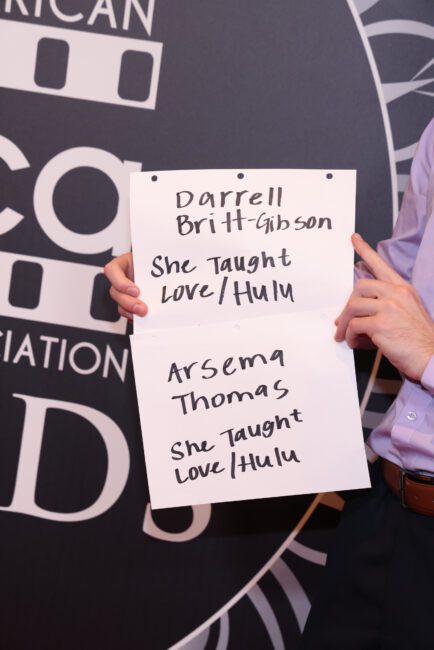 RICAN
ca
CIATION
Ds
Darrell
Britt-Gibson
She Taught
Love/Hulu
Arsema
Thomas
She Taught
Love/Hulu